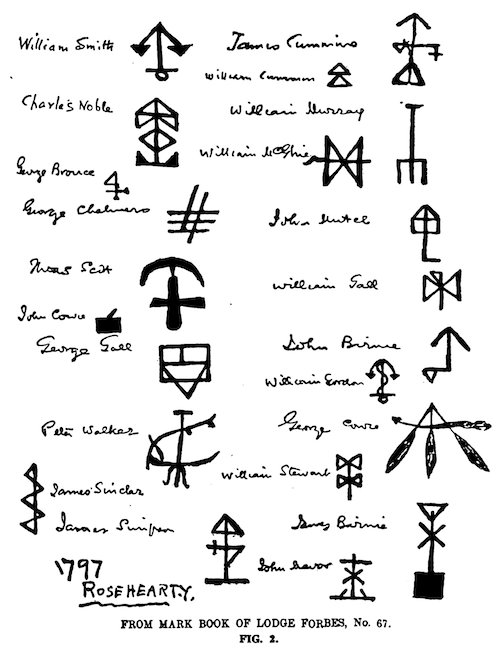 William Smith
James Cummino
William Cummin
Charles Noble
William Murray
William McGhie
George Bronce
George Chalmers
John Mutch
Thos Scott
William Gall
John Cowie
George Gall
John Birnie
William Gordon
Peter Walker
George Cowie
William Stewart
James Sinclar
James Simpson
James Birnie
John
1797
ROSEHEARTY.
FROM MARK BOOK OF LODGE FORBES, No. 67.
FIG. 2.